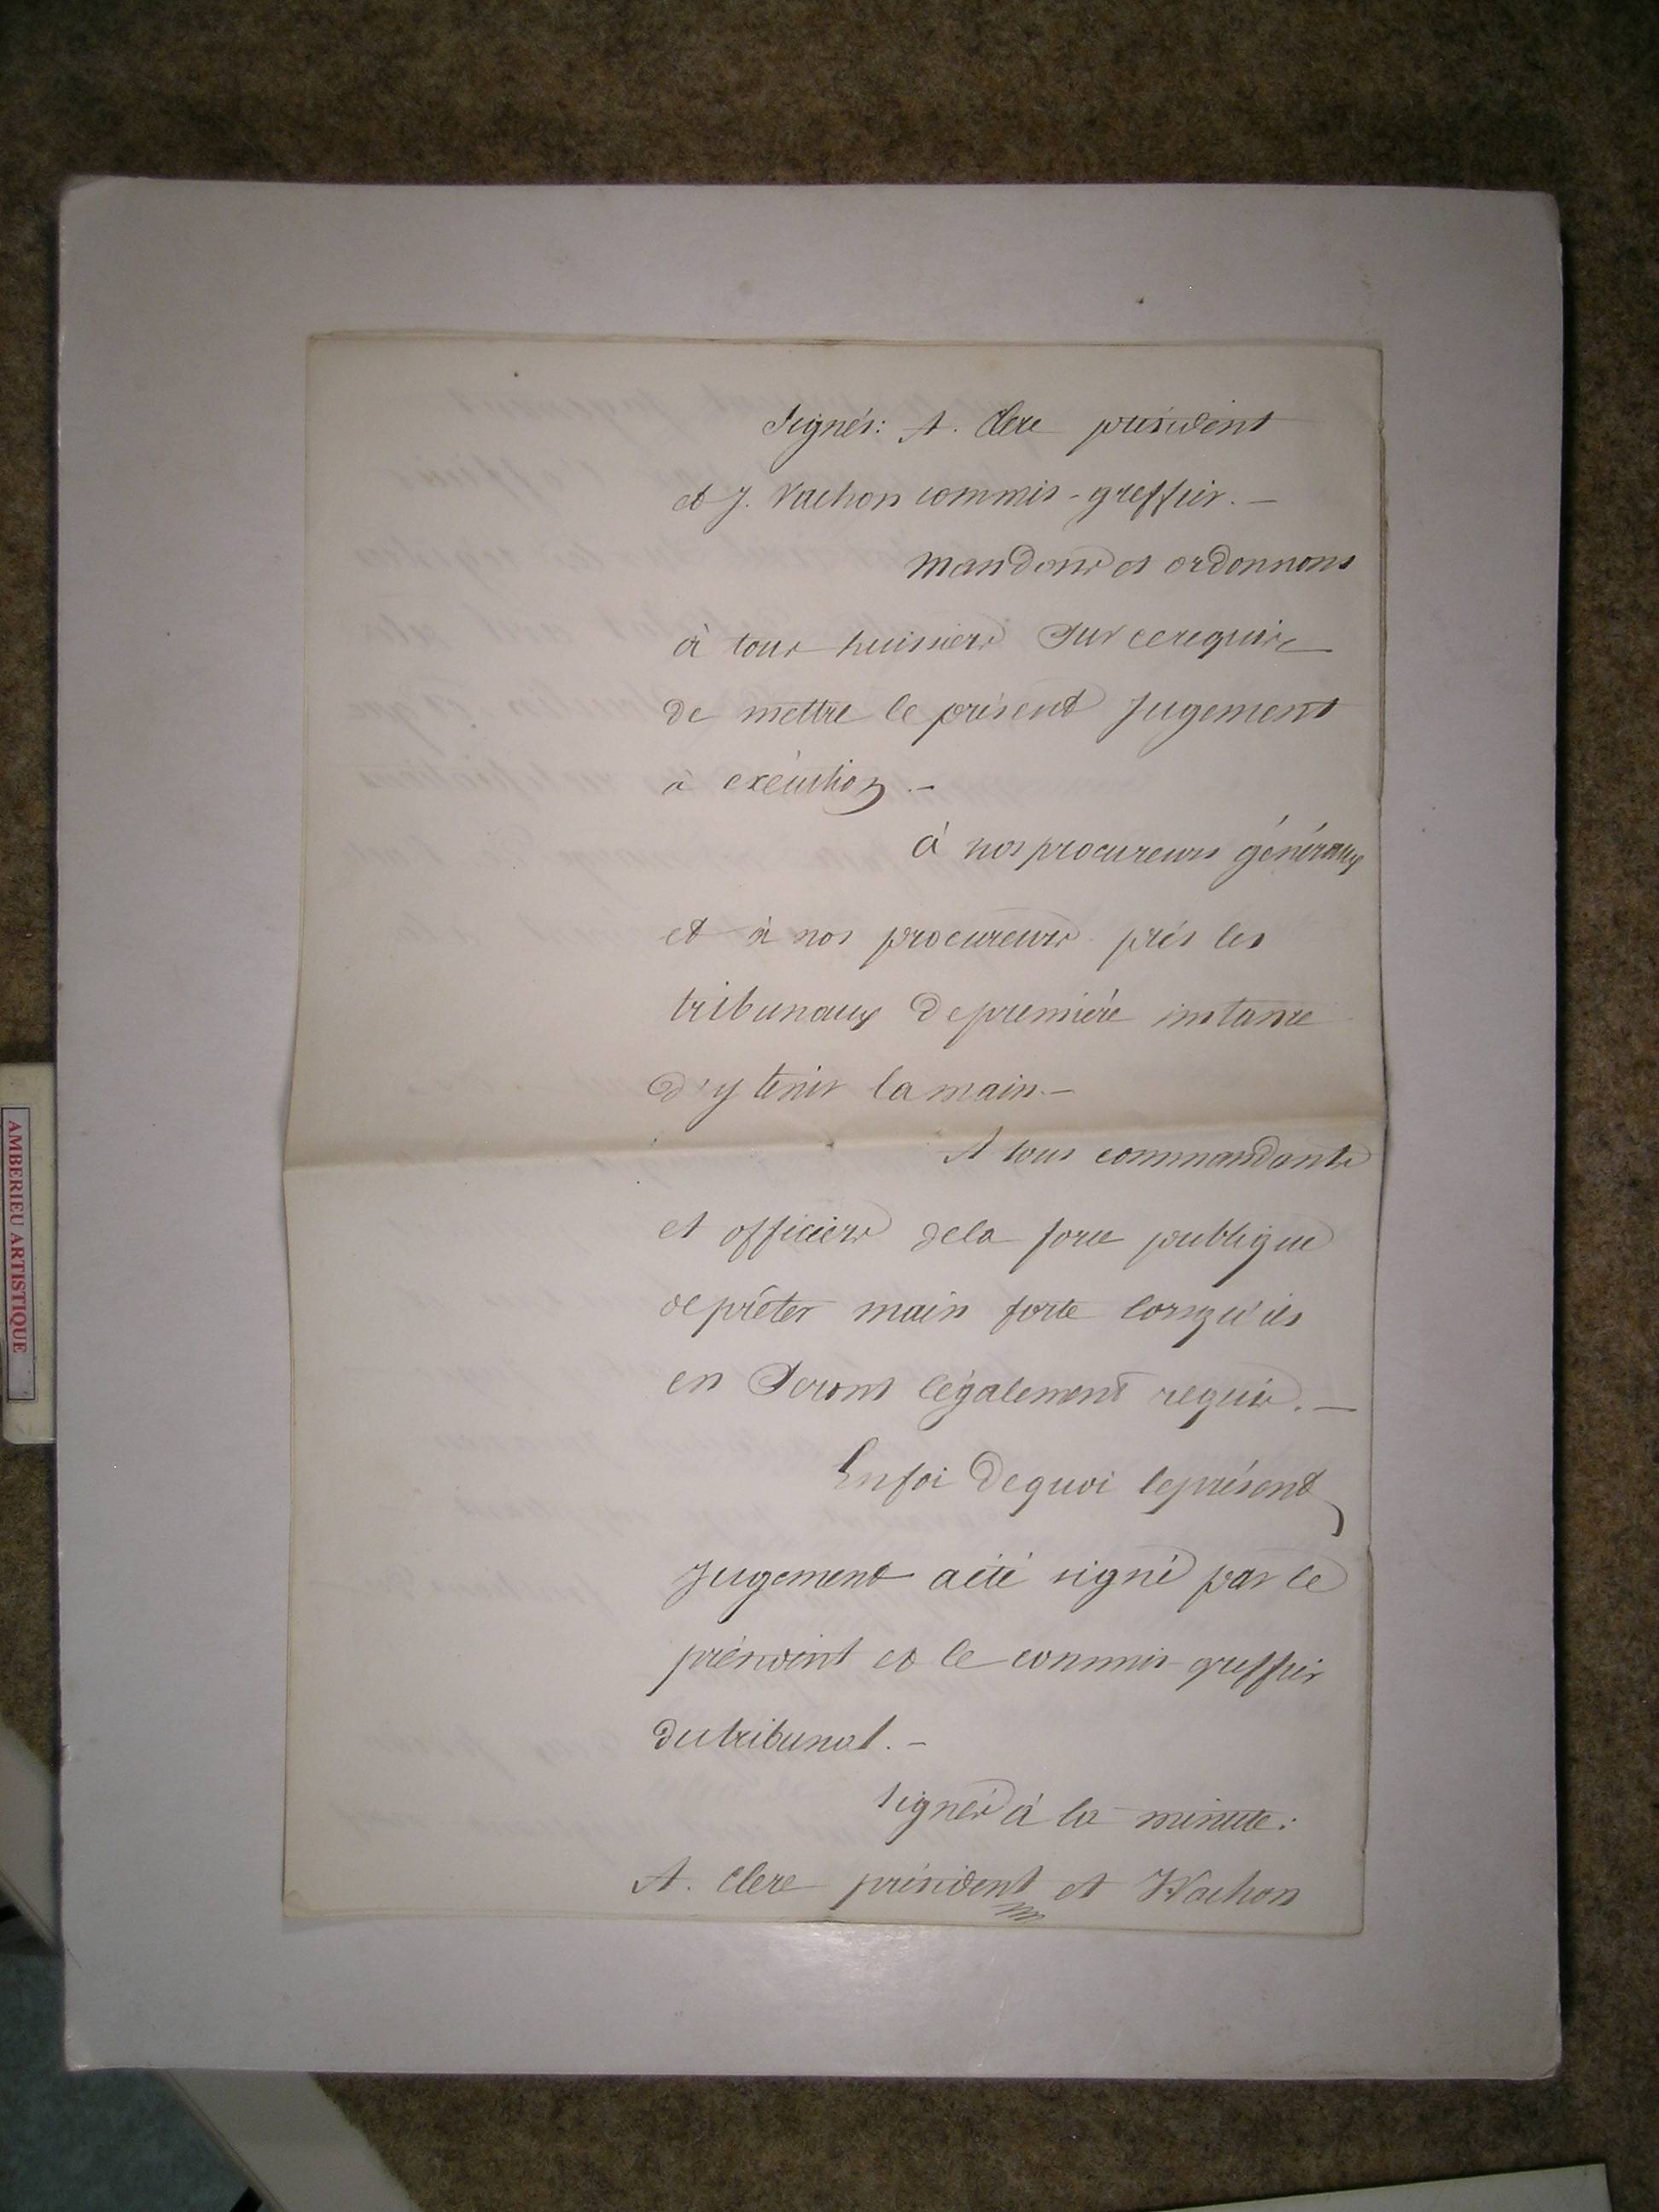 Signés: A. Clerc président
et J. Vachon commis-greffier. —
Mandons et ordonnons
à tous huissiers sur ce requis
de mettre le présent Jugement
à exécution. —
à nos procureurs généraux
et à nos procureurs près les
tribunaux de première instance
d'y tenir la main. —
A tous commandants
et officiers de la force publique
de prêter main forte lorsqu'ils
en seront légalement requis. —
En foi de quoi le présent
Jugement a été signé par le
président et le commis greffier
du tribunal. —
Signés à la minute:
A. Clerc président et Vachon
AMBERIEU ARTISTIQUE